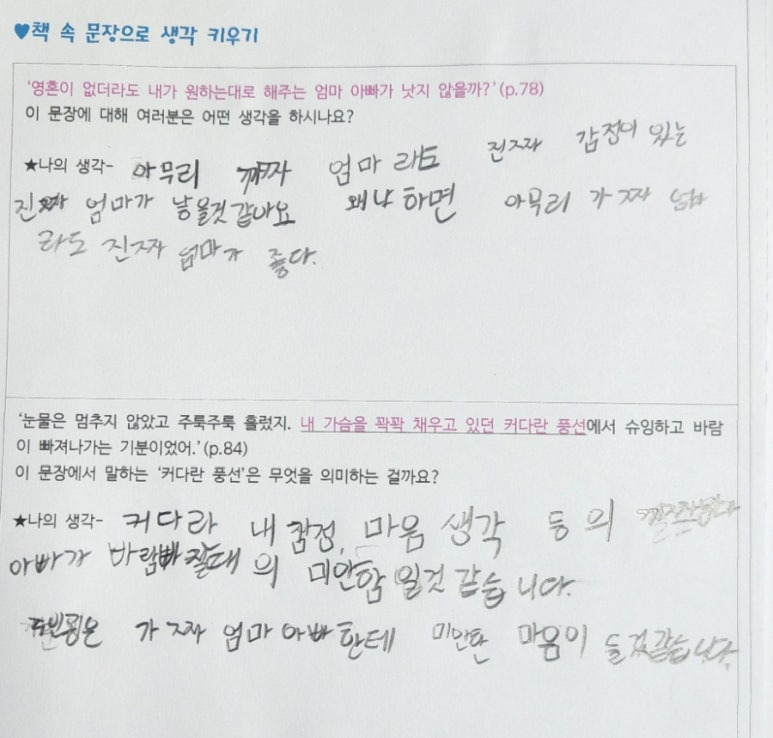 ♥책 속 문장으로 생각 키우기
‘영혼이 없더라도 내가 원하는대로 해주는 엄마 아빠가 낫지 않을까?’(p.78)
이 문장에 대해 여러분은 어떤 생각을 하시나요?
★나의 생각- 아무리 엄마라도 진짜 감정이 있는
진짜 엄마가 낳을것 같아요 왜냐하면 아무리 가짜 엄마
라도 진짜 엄마가 좋다.
‘눈물은 멈추지 않았고 주룩주룩 흘렀지. 내 가슴을 꽉꽉 채우고 있던 커다란 풍선에서 슈잉하고 바람
이 빠져나가는 기분이었어.’(p.84)
이 문장에서 말하는 ‘커다란 풍선’은 무엇을 의미하는 걸까요?
★나의 생각- 커다라 내 감정, 마음 생각 등의
아빠가 의 미안함 일것 같습니다.
가짜 엄마 아빠한테 미안한 마음이 들것같습니다.